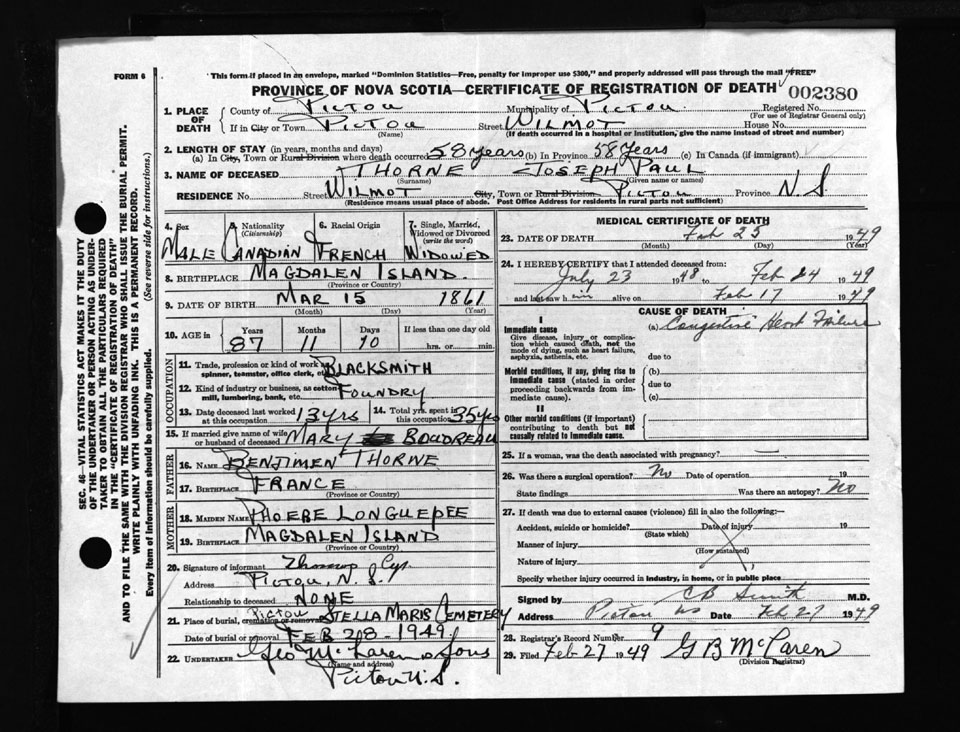 FORM 6
This form if placed in an envelope, marked "Dominion Statistics—Free, penalty for improper use $300," and properly addressed will pass through the mail "FREE"
PROVINCE OF NOVA SCOTIA—CERTIFICATE OF REGISTRATION OF DEATH
002380
1. PLACE OF DEATH County of PICTOU Municipality of PICTOU Registered No.
(For use of Registrar General only)
If in City or Town PICTOU Street WILMOT House No.
(Name) (If death occurred in a hospital or institution, give the name instead of street and number)
2. LENGTH OF STAY (in years, months and days)
(a) In City, Town or Rural Division where death occurred 58 years (b) In Province 58 years (c) In Canada (if immigrant)
3. NAME OF DECEASED THORNE JOSEPH PAUL
(Surname) (Given name or names)
RESIDENCE No. Street WILMOT City, Town or Rural Division PICTOU Province N.S.
(Residence means usual place of abode. Post Office Address for residents in rural parts not sufficient)
SEC. 46—VITAL STATISTICS ACT MAKES IT THE DUTY
OF THE UNDERTAKER OR PERSON ACTING AS UNDER-
TAKER TO OBTAIN ALL THE PARTICULARS REQUIRED
IN THE "CERTIFICATE OF REGISTRATION OF DEATH"
AND TO FILE THE SAME WITH THE DIVISION REGISTRAR WHO SHALL ISSUE THE BURIAL PERMIT.
WRITE PLAINLY WITH UNFADING INK. THIS IS A PERMANENT RECORD.
Every item of information should be carefully supplied. (See reverse side for instructions.)
4. Sex 5. Nationality (Citizenship) 6. Racial Origin 7. Single, Married, Widowed or Divorced (write the word)
MALE CANADIAN FRENCH WIDOWED
8. BIRTHPLACE MAGDALEN ISLAND.
(Province or Country)
9. DATE OF BIRTH MAR 15 1861
(Month) (Day) (Year)
10. AGE in Years Months Days If less than one day old
87 11 10 hrs. or min.
OCCUPATION
11. Trade, profession or kind of work as spinner, teamster, office clerk, etc. BLACKSMITH
12. Kind of industry or business, as cotton mill, lumbering, bank, etc. FOUNDRY
13. Date deceased last worked at this occupation 13 yrs 14. Total yrs. spent in this occupation 35 yrs
15. If married give name of wife or husband of deceased MARY BOUDREAU
FATHER
16. NAME BENJIMEN THORNE
17. BIRTHPLACE FRANCE
(Province or Country)
MOTHER
18. MAIDEN NAME PHOEBE LONGUEPEE
19. BIRTHPLACE MAGDALEN ISLAND
(Province or Country)
20. Signature of informant
Address PICTOU, N.S.
Relationship to deceased NONE
21. Place of burial, cremation or removal PICTOU STELLA MARIS CEMETERY
Date of burial or removal FEB 28-1949
22. UNDERTAKER Geo McLaren & Sons
(Name and address)
Pictou N.S.
MEDICAL CERTIFICATE OF DEATH
23. DATE OF DEATH Feb 25 1949
(Month) (Day) (Year)
24. I HEREBY CERTIFY that I attended deceased from:
July 23 1948 to Feb 24 1949
and last saw him alive on Feb 17 1949
CAUSE OF DEATH
I
Immediate cause (a) Congestive Heart Failure
Give disease, injury or complication which caused death, not the mode of dying, such as heart failure, asphyxia, asthenia, etc. due to
Morbid conditions, if any, giving rise to immediate cause (stated in order proceeding backwards from immediate cause). (b)
due to
(c)
II
Other morbid conditions (if important) contributing to death but not causally related to immediate cause.
25. If a woman, was the death associated with pregnancy? —
26. Was there a surgical operation? No Date of operation 19
State findings Was there an autopsy? No
27. If death was due to external causes (violence) fill in also the following:—
Accident, suicide or homicide? Date of injury 19
(State which)
Manner of injury
(How sustained)
Nature of injury
Specify whether injury occurred in industry, in home, or in public place
Signed by C B Smith M.D.
Address Pictou NS Date Feb 27 1949
28. Registrar's Record Number 9
29. Filed Feb 27 1949 G B McLaren
(Division Registrar)